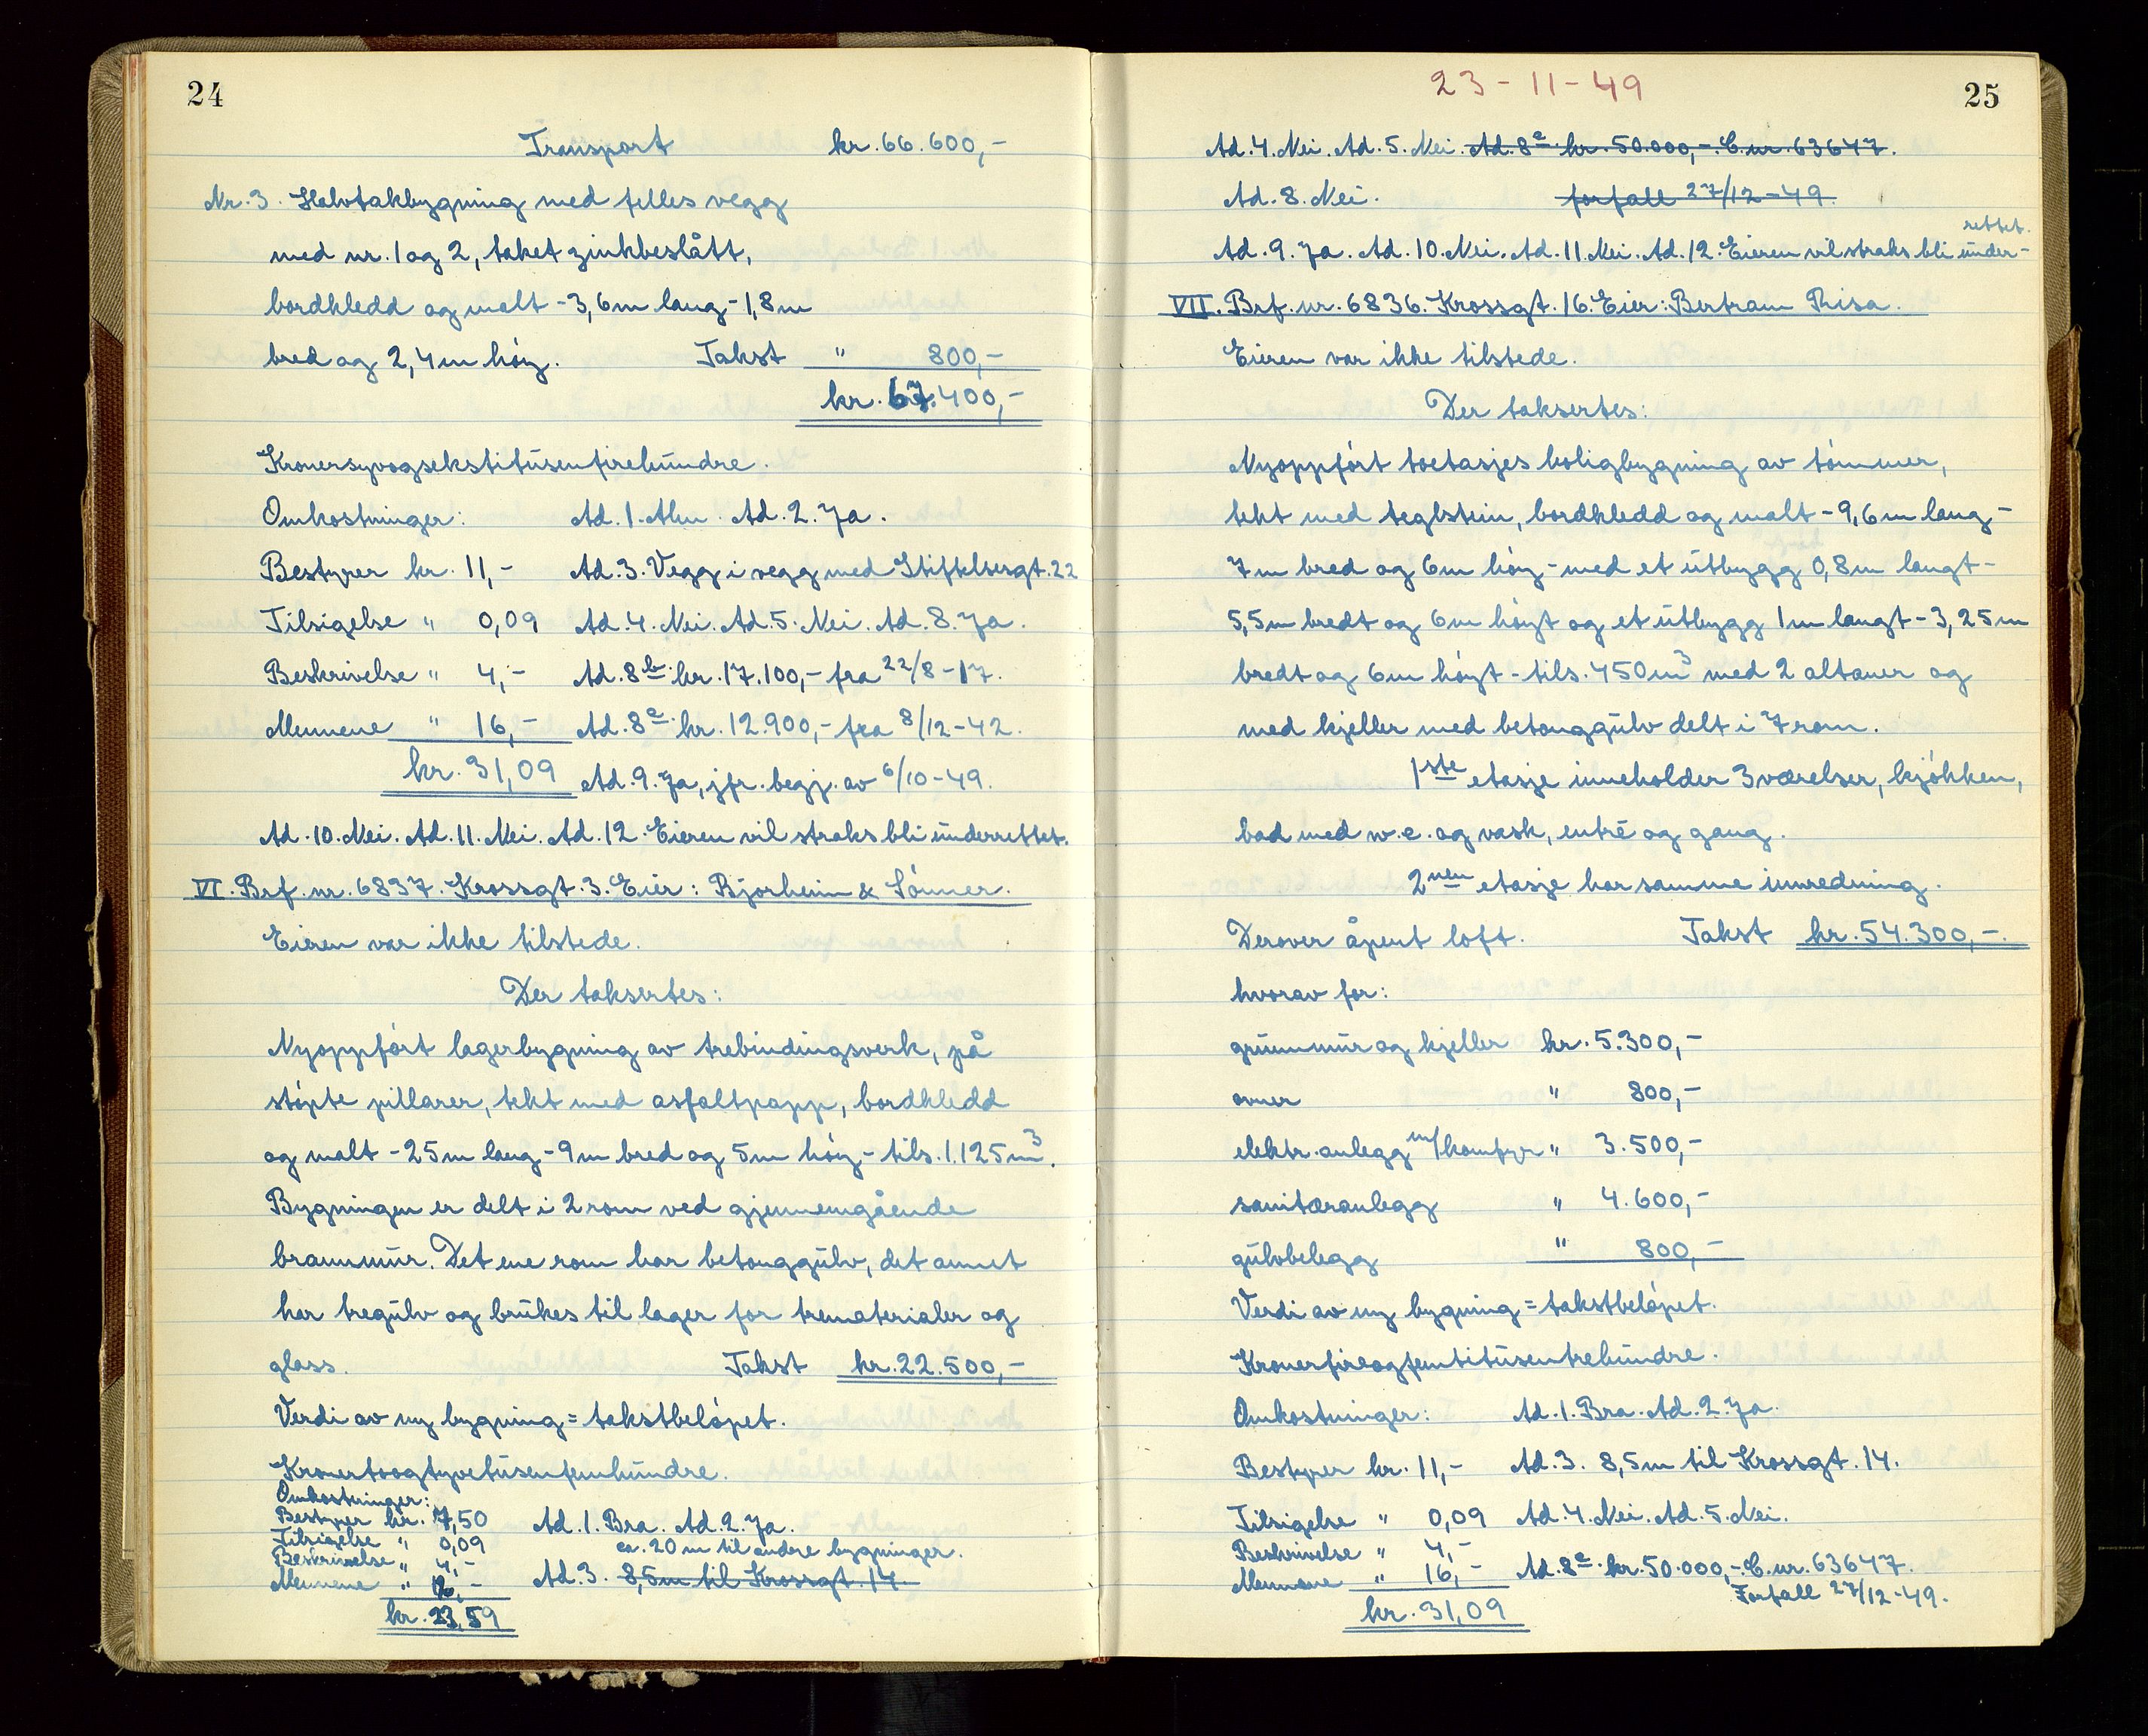 24
Transport kr. 66.600,-
Nr. 3. Halvtakbygning med felles vegg
med nr. 1 og 2, taket zinkbeslått,
bordkledd og malt - 3,6m lang - 1,8m
bred og 2,4m høy. Takst " 800,-
kr. 67.400,-
Kronersyvogsekstitusenfirehundre.
Omkostninger: Ad. 1. Alm. Ad. 2. Ja.
Bestyrer kr. 11,- Ad. 3. Vegg i vegg med Stiftelsesgt. 22
Tilsigelse " 0,09 Ad. 4. Nei. Ad. 5. Nei. Ad. 8. Ja.
Beskrivelse " 4,- Ad. 8b. kr. 17.100,- fra 22/8-17.
Mennene " 16,- Ad. 8a. kr. 12.900,- fra 8/12-42.
kr. 31,09 Ad. 9. Ja, jfr. begj. av 6/10-49.
Ad. 10. Nei. Ad. 11. Nei. Ad. 12. Eieren vil straks bli underrettet.
VI. Brf. nr. 6837. Krossgt. 3. Eier: Bjorheim & Sønner.
Eieren var ikke tilstede.
Der taksertes:
Nyoppført lagerbygning av trebindingsverk, på
støpte pillarer, tekt med asfaltpapp, bordkledd
og malt - 25m lang - 9m bred og 5m høy - tils. 1.125m3.
Bygningen er delt i 2 rom ved gjennemgående
brannmur. Det ene rom har betonggulv, det annet
har tregulv og brukes til lager for trematerialer og
glass. Takst kr. 22.500,-
Verdi av ny bygning = takstbeløpet.
Kronertoogtyvetusenfemhundre.
Omkostninger:
Bestyrer kr. 7,50 Ad. 1. Bra. Ad. 2. Ja.
Tilsigelse " 0,09 ca. 20 m til andre bygninger.
Beskrivelse " 4,-
Mennene " 12,- Ad. 3. 8,5m til Krossgt. 14.
kr. 23,59
23-11-49
25
Ad. 4. Nei. Ad. 5. Nei. Ad. 8a kr. 50.000,-. C. nr. 63647.
Ad. 8. Nei. forfall 27/12-49.
rettet.
Ad. 9. Ja. Ad. 10. Nei. Ad. 11. Nei. Ad. 12. Eieren vil straks bli under-
VII. Brf. nr. 6836. Krossgt. 16. Eier: Bertram Risa.
Eieren var ikke tilstede.
Der taksertes:
Nyoppført toetasjes boligbygning av tømmer,
tekt med teglstein, bordkledd og malt - 9,6m lang -
7m bred og 6m høy - med et utbygg 0,8m langt -
5,5m bredt og 6m høyt og et utbygg 1m langt - 3,25m
bredt og 6m høyt - tils. 450m3 med 2 altaner og
med kjeller med betonggulv delt i 7 rom.
1ste etasje inneholder 3 værelser, kjøkken,
bad med w.c. og vask, entré og gang.
2nen etasje har samme innredning.
Derover åpent loft. Takst kr. 54.300,-.
hvorav for:
grunnmur og kjeller kr. 5.300,-
ovner " 800,-
elektr. anlegg m/komfyr " 3.500,-
sanitæranlegg " 4.600,-
gulvbelegg " 800,-
Verdi av ny bygning = takstbeløpet.
Kronerfireogfemtitusentrehundre.
Omkostninger: Ad. 1. Bra. Ad. 2. Ja.
Bestyrer kr. 11,- Ad. 3. 8,5m til Krossgt. 14.
Tilsigelse " 0,09 Ad. 4. Nei. Ad. 5. Nei.
Beskrivelse " 4,-
Mennene " 16,- Ad. 8a. kr. 50.000,-. C. nr. 63647.
kr. 31,09 Forfall 27/12-49.